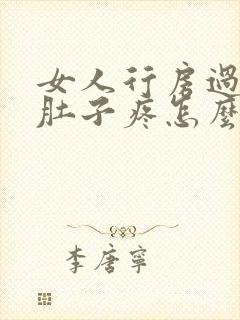 女人行房過
肚子疼怎麼
李唐寧